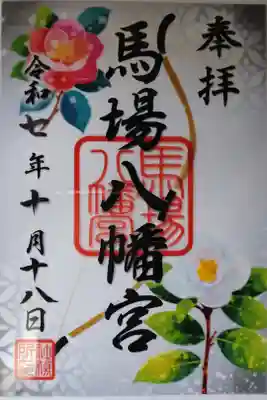 奉拝
馬場八幡宮
馬場
八幡宮
令和七年十月十八日